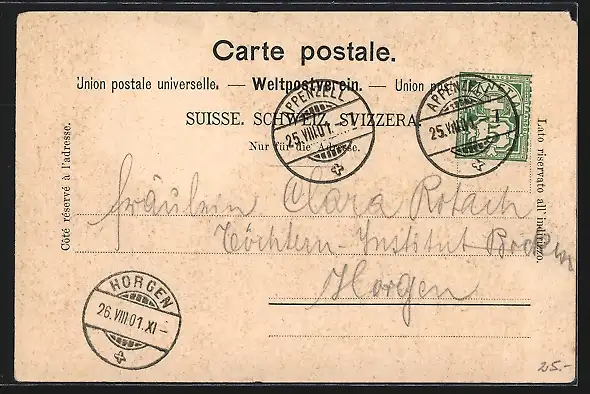 Carte postale.
Union postale universelle. — Weltpostverein. — Union
SUISSE. SCHWEIZ. SVIZZERA.
Nur für die Adresse.
Côté réservé à l'adresse.
Lato riservato all' indirizzo.
APPENZELL
25.VIII.01.
APPENZELL
25.VIII.01
Fräulein Clara Rotach
Töchtern-Institut
Horgen
HORGEN
26.VIII.01.XI-
25.-